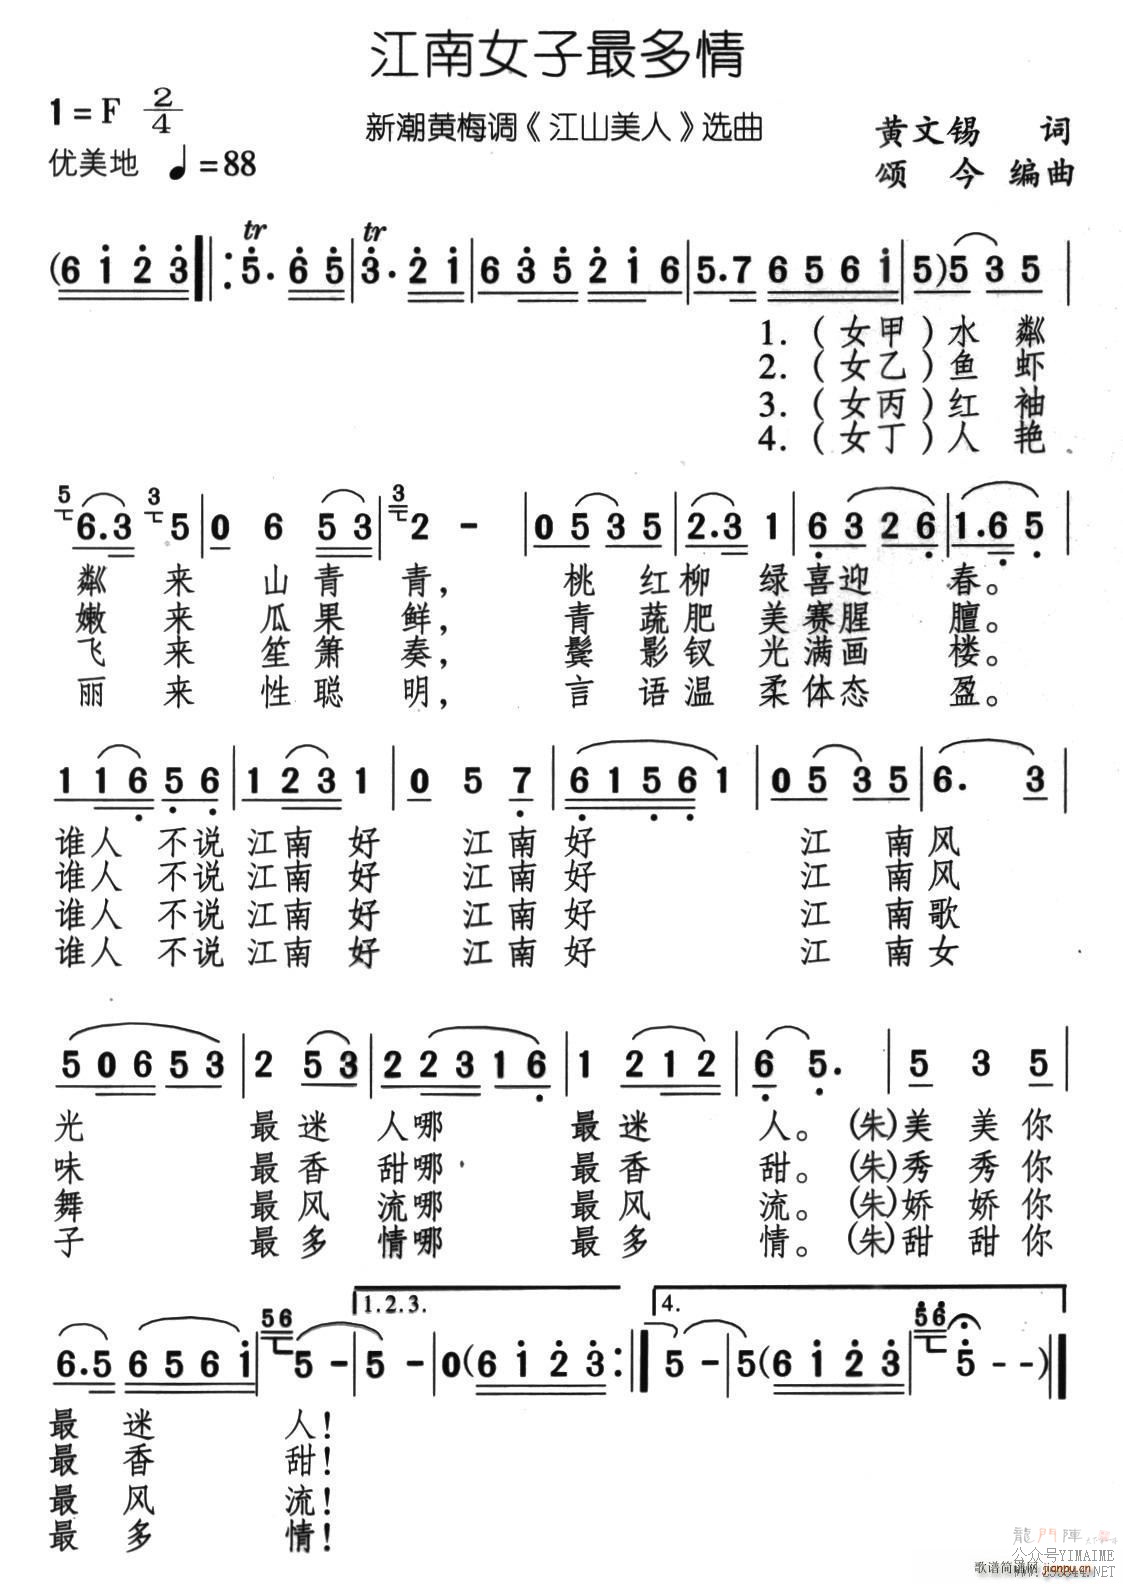 江南女子最多情
1=F 2/4
新潮黄梅调《江山美人》选曲
黄文锡 词
优美地 ♩=88
颂 今 编曲
tr tr
(6 1 2 3 |: 5. 6 5 | 3. 2 1 | 6 3 5 2 1 6 | 5.7 6 5 6 1 | 5)5 3 5 |
1.(女甲)水 粼
2.(女乙)鱼 虾
3.(女丙)红 袖
4.(女丁)人 艳
5 6.3 3 5 | 0 6 5 3 | 3 2 - | 0 5 3 5 | 2.3 1 | 6 3 2 6 | 1.6 5 |
粼 来 山 青 青, 桃 红 柳 绿 喜 迎 春。
嫩 来 瓜 果 鲜, 青 蔬 肥 美 赛 腥 膻。
飞 来 笙 箫 奏, 鬓 影 钗 光 满 画 楼。
丽 来 性 聪 明, 言 语 温 柔 体 态 盈。
1 1 6 5 6 | 1 2 3 1 | 0 5 7 | 6 1 5 6 1 | 0 5 3 5 | 6. 3 |
谁 人 不 说 江 南 好 江 南 好 江 南 风
谁 人 不 说 江 南 好 江 南 好 江 南 风
谁 人 不 说 江 南 好 江 南 好 江 南 歌
谁 人 不 说 江 南 好 江 南 好 江 南 女
5 0 6 5 3 | 2 5 3 | 2 2 3 1 6 | 1 2 1 2 | 6 5. | 5 3 5 |
光 最 迷 人 哪 最 迷 人。(朱)美 美 你
味 最 香 甜 哪 最 香 甜。(朱)秀 秀 你
舞 最 风 流 哪 最 风 流。(朱)娇 娇 你
子 最 多 情 哪 最 多 情。(朱)甜 甜 你
1.2.3. 4.
6.5 6 5 6 1 | 56 5 - | 5 - | 0(6 1 2 3 :| 5 - | 5(6 1 2 3 | 56 5 - - )|
最 迷 人!
最 香 甜!
最 风 流!
最 多 情!
龍門陣
公众号YIMAIME
歌谱简谱网 jianpu.cn